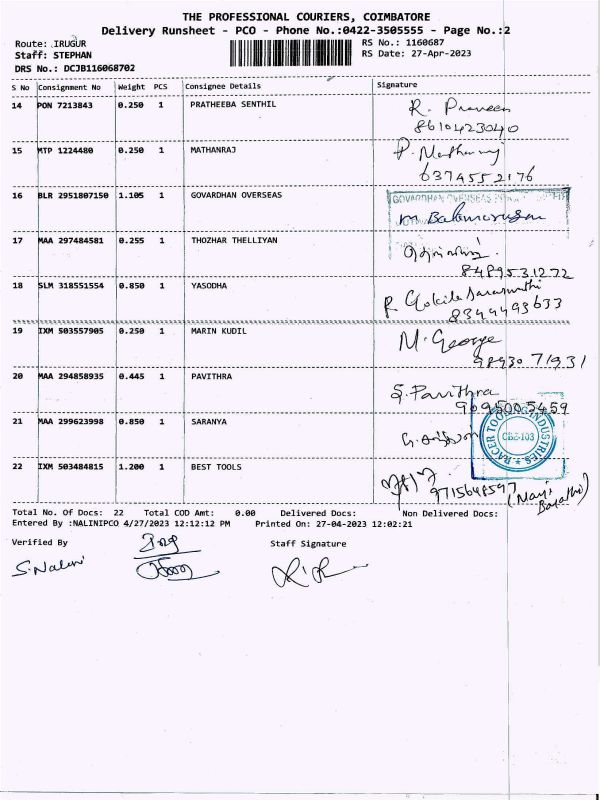 THE PROFESSIONAL COURIERS, COIMBATORE
Delivery Runsheet - PCO - Phone No.:0422-3505555 - Page No.:2
Route: IRUGUR
Staff: STEPHAN
DRS No.: DCJB116068702
RS No.: 1160687
RS Date: 27-Apr-2023
S No Consignment No Weight PCS Consignee Details Signature
14 PON 7213843 0.250 1 PRATHEEBA SENTHIL R. Praveen
8610423040
15 MTP 1224480 0.250 1 MATHANRAJ
6374552176
16 BLR 2951807150 1.105 1 GOVARDHAN OVERSEAS GOVARDHAN OVERSEAS
m. Balamurugan
17 MAA 297484581 0.255 1 THOZHAR THELLIYAN
8489531272
18 SLM 318551554 0.850 1 YASODHA R Gokila Saraswathi
8344493633
19 IXM 503557905 0.250 1 MARIN KUDIL M. George
98930 71931
20 MAA 294858935 0.445 1 PAVITHRA S. Pavithra
9095005459
21 MAA 299623998 0.850 1 SARANYA
RACER TOOLING INDUSTRIES
CBE-103
22 IXM 503484815 1.200 1 BEST TOOLS
9715648597
Total No. Of Docs: 22 Total COD Amt: 0.00 Delivered Docs: Non Delivered Docs:
Entered By :NALINIPCO 4/27/2023 12:12:12 PM Printed On: 27-04-2023 12:02:21
Verified By Staff Signature
S. Nalini